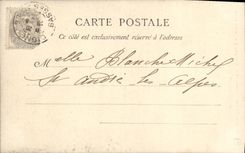 CARTE POSTALE
Ce côté est exclusivement réservé à l'adresse
Melle Blanche Michel
St André les Alpes